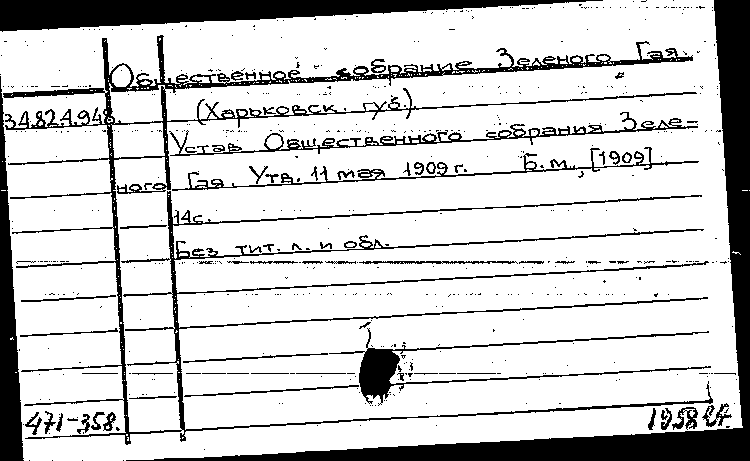 Общественное собрание Зеленого Гая.
34.82.4.948. (Харьковск. губ.)
Устав Общественного собрания Зеле=
ного Гая. Утв. 11 мая 1909 г. Б.м., [1909].
14с.
Без тит. л. и обл.
471-358. 1958